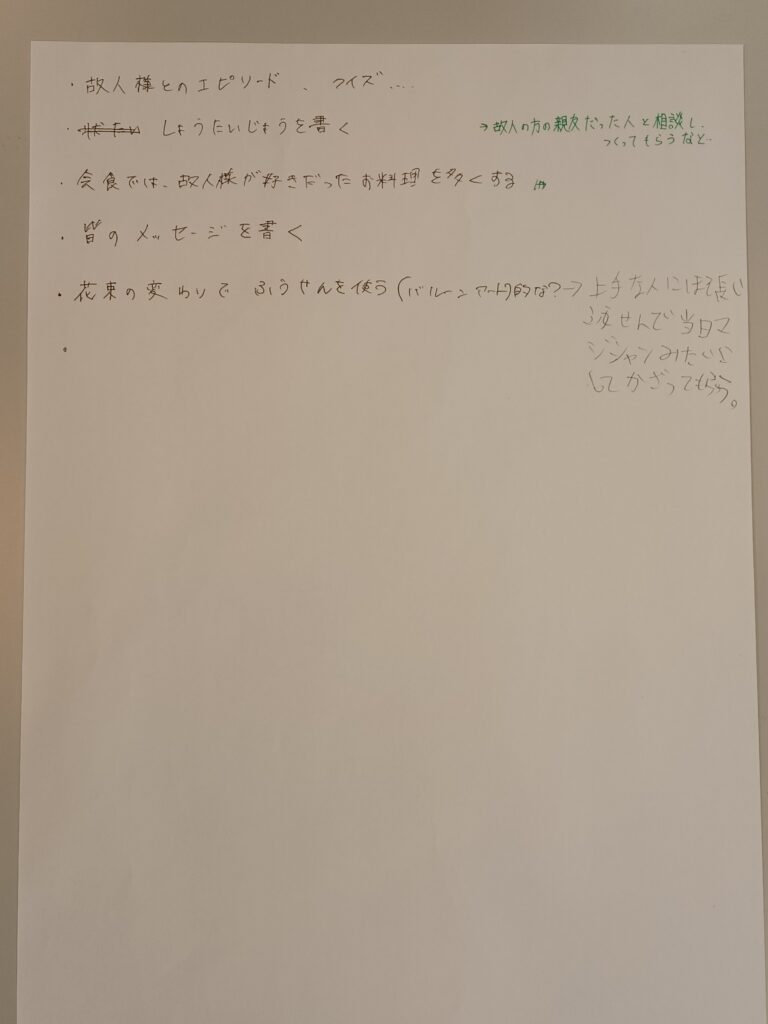 ・故人様とのエピソード、クイズ....
・しょうたいじょうを書く
→故人の方の親友だった人と相談し、
つくってもらうなど..
・会食では、故人様が好きだったお料理を多くする
・皆のメッセージを書く
・花束の変わりで ふうせんを使う(バルーンアート)的な?→上手な人にほそ長い
ふうせんで当日マ
ジシャンみたいに
してかざってもらう。
・